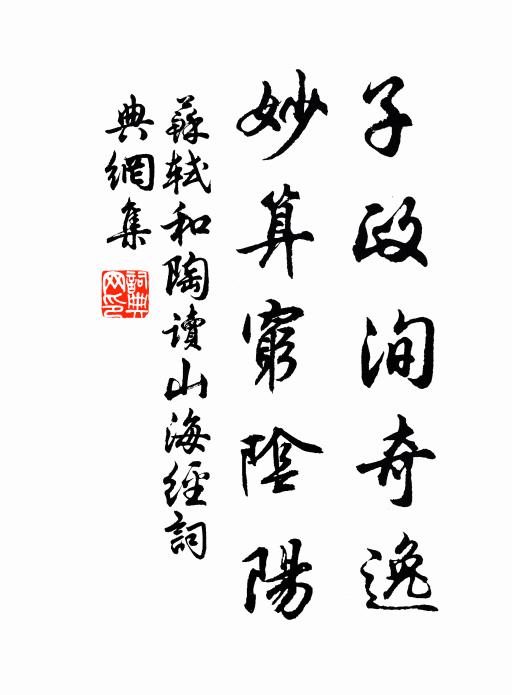 子政洵奇逸
妙算窮陰陽
蘇軾和陶讀山海經詞
典網集
詞典
网印